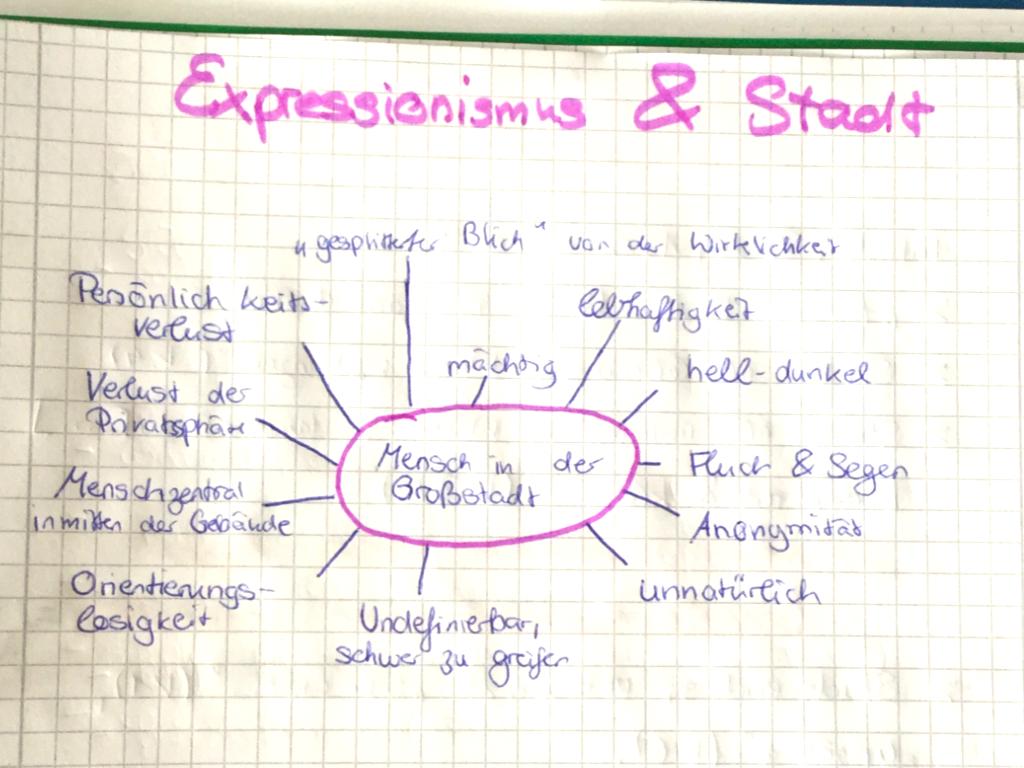 Expressionismus & Stadt
„gesplitterter Blick" von der Wirklichkeit
Persönlichkeits-
verlust
lebhaftigkeit
mächtig
hell-dunkel
Verlust der
Privatsphäre
Mensch in der
Großstadt
Fluch & Segen
Mensch zentral
inmitten der Gebäude
Anonymität
Orientierungs-
losigkeit
unnatürlich
Undefinierbar,
schwer zu greifen